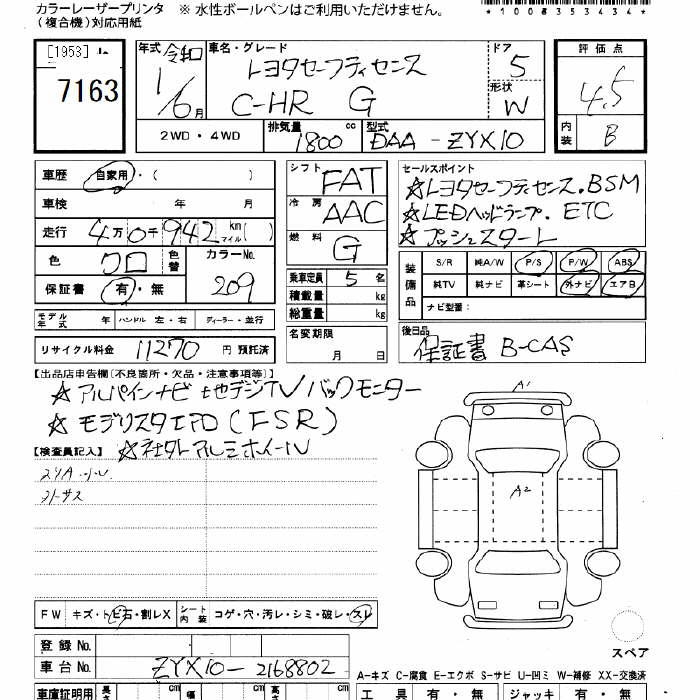 カラーレーザープリンタ ※ 水性ボールペンはご利用いただけません。
(複合機)対応用紙
*1008353434*
[1953]
7163
年式 令和 1/6月
車名・グレード
トヨタセーフティセンス
C-HR G
ドア 5
形状 W
2WD・4WD
排気量 1800 cc
型式 DAA-ZYX10
評価点 4.5
内装 B
車歴 自家用・( )
車検 年 月
走行 4万0千942 km マイル( )
色 クロ 色替
カラーNo. 209
保証書 有・無
モデル年式 年 ハンドル 左・右 ディーラー・並行
リサイクル料金 11270 円 預託済
シフト FAT
冷房 AAC
燃料 G
乗車定員 5 名
積載量 kg
総重量 kg
名変期限 月 日
セールスポイント
☆トヨタセーフティセンス.BSM
☆LEDヘッドランプ. ETC
☆プッシュスタート
装備品
S/R 純A/W P/S P/W ABS
純TV 純ナビ 革シート 外ナビ エアB
ナビ型番:
後日品
保証書 B-CAS
【出品店申告欄(不良箇所・欠品・注意事項等)】
☆アルパインナビ 地デジTV バックモニター
☆モデリスタエアロ(FSR)
☆社外アルミホイール
【検査員記入】
A1
A2
FW キズ・トビ石・割レX
シート内装 コゲ・穴・汚レ・シミ・破レ・スレ
スペア
登録 No.
車台 No. ZYX10-2168802
A-キズ C-腐食 E-エクボ S-サビ U-凹ミ W-補修 XX-交換済
車庫証明用 長さ cm 幅 cm 高さ cm
工具 有・無 ジャッキ 有・無